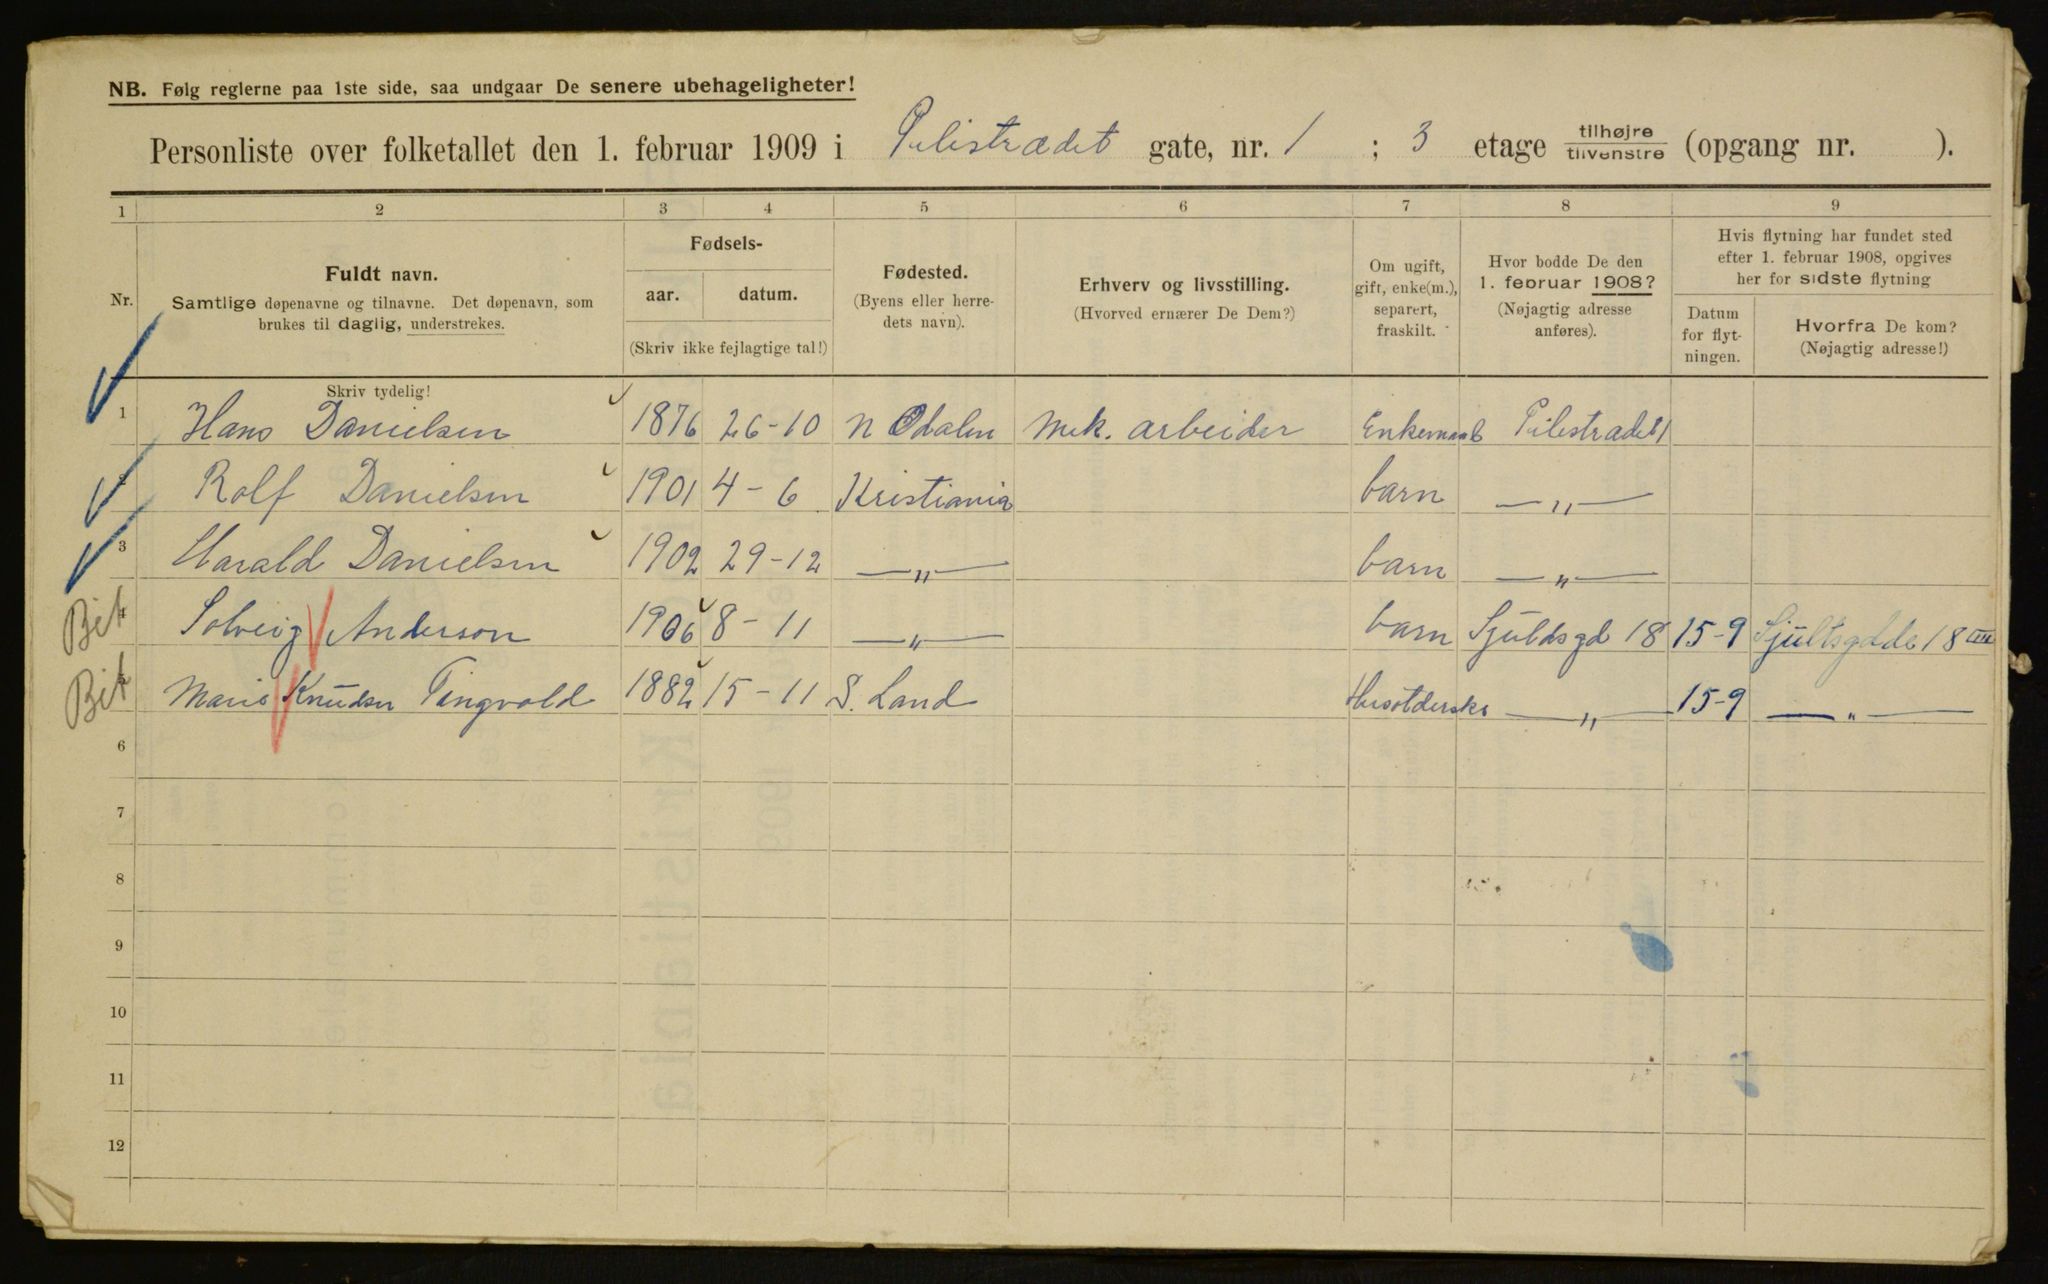 NB. Følg reglerne paa 1ste side, saa undgaar De senere ubehageligheter!
Personliste over folketallet den 1. februar 1909 i Pilestrædet gate, nr. 1 ; 3 etage tilhøjre/tilvenstre (opgang nr. ).
1 2 3 4 5 6 7 8 9
Nr.
Fuldt navn.
Samtlige døpenavne og tilnavne. Det døpenavn, som
brukes til daglig, understrekes.
Fødsels-
aar. datum.
(Skriv ikke fejlagtige tal!)
Fødested.
(Byens eller herre-
dets navn).
Erhverv og livsstilling.
(Hvorved ernærer De Dem?)
Om ugift,
gift, enke(m.),
separert,
fraskilt.
Hvor bodde De den
1. februar 1908?
(Nøjagtig adresse
anføres).
Hvis flytning har fundet sted
efter 1. februar 1908, opgives
her for sidste flytning
Datum
for flyt-
ningen.
Hvorfra De kom?
(Nøjagtig adresse!)
Skriv tydelig!
1 Hans Danielsen 1876 26-10 N Odalen Mek. arbeider Enkemand Pilestrædet 1
2 Rolf Danielsen 1901 4-6 Kristiania barn —„—
3 Harald Danielsen 1902 29-12 —„— barn —„—
Bet 4 Solveig Anderson 1906 8-11 —„— barn Sjuldsgd 18 15-9 Sjultsgade 18 III
Bet 5 Marie Knudsen Tingvold 1882 15-11 S. Land Husolderske —„— 15-9 —„—
6
7
8
9
10
11
12